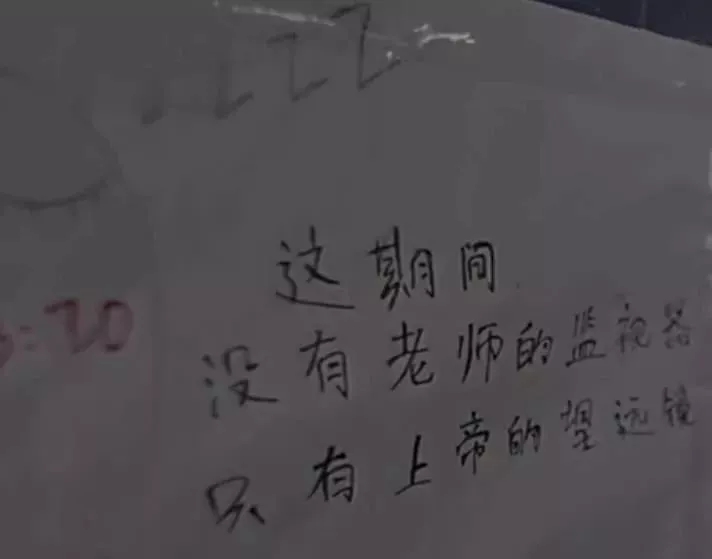 zzzz
:20
这期间
没有老师的监视器
只有上帝的望远镜